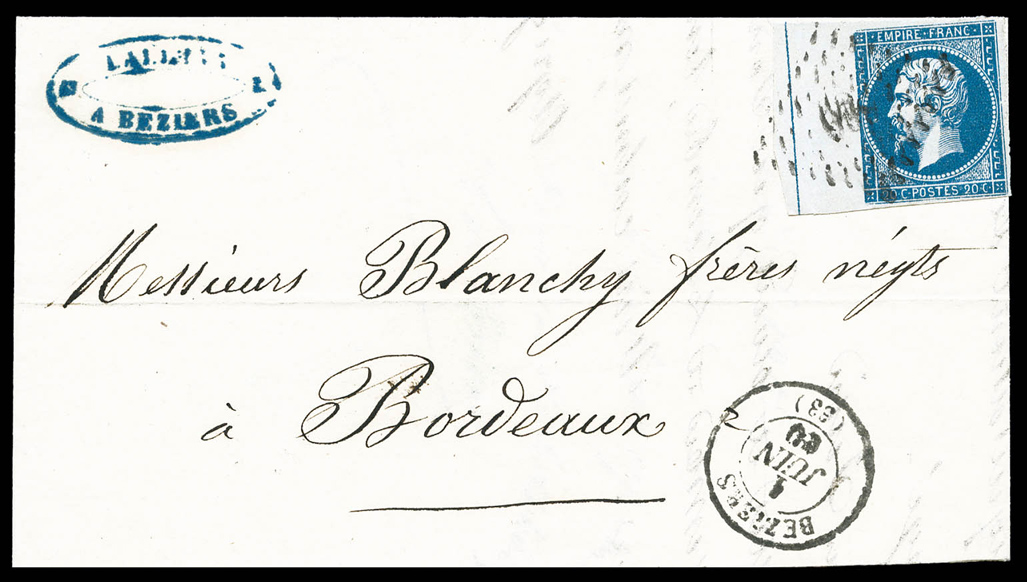 A BEZIERS
EMPIRE FRANC
20 C·POSTES 20 C·
Messieurs Blanchy frères négts
à Bordeaux
BEZIERS
JUIN
60
(33)